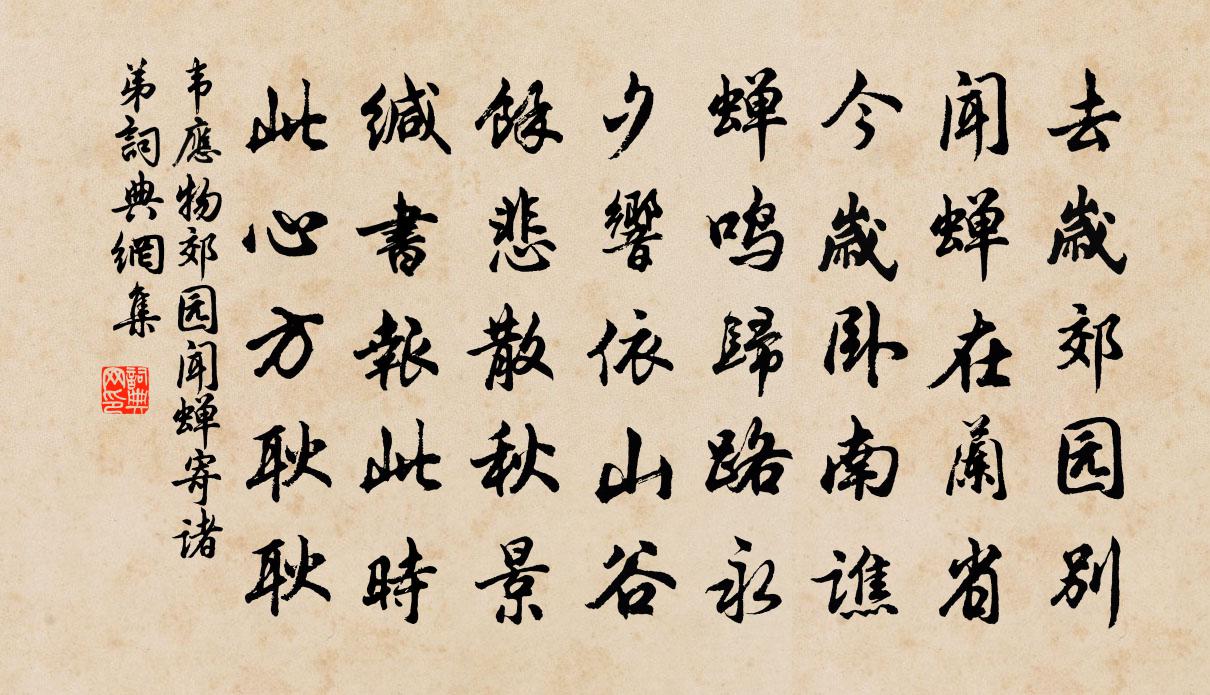 去歲郊园别
闻蝉在蘭省
今歲卧南譙
蝉鸣歸路永
夕響依山谷
餘悲散秋景
缄書報此時
此心方耿耿
韦應物郊园闻蝉寄诸
弟詞典網集
詞典网印